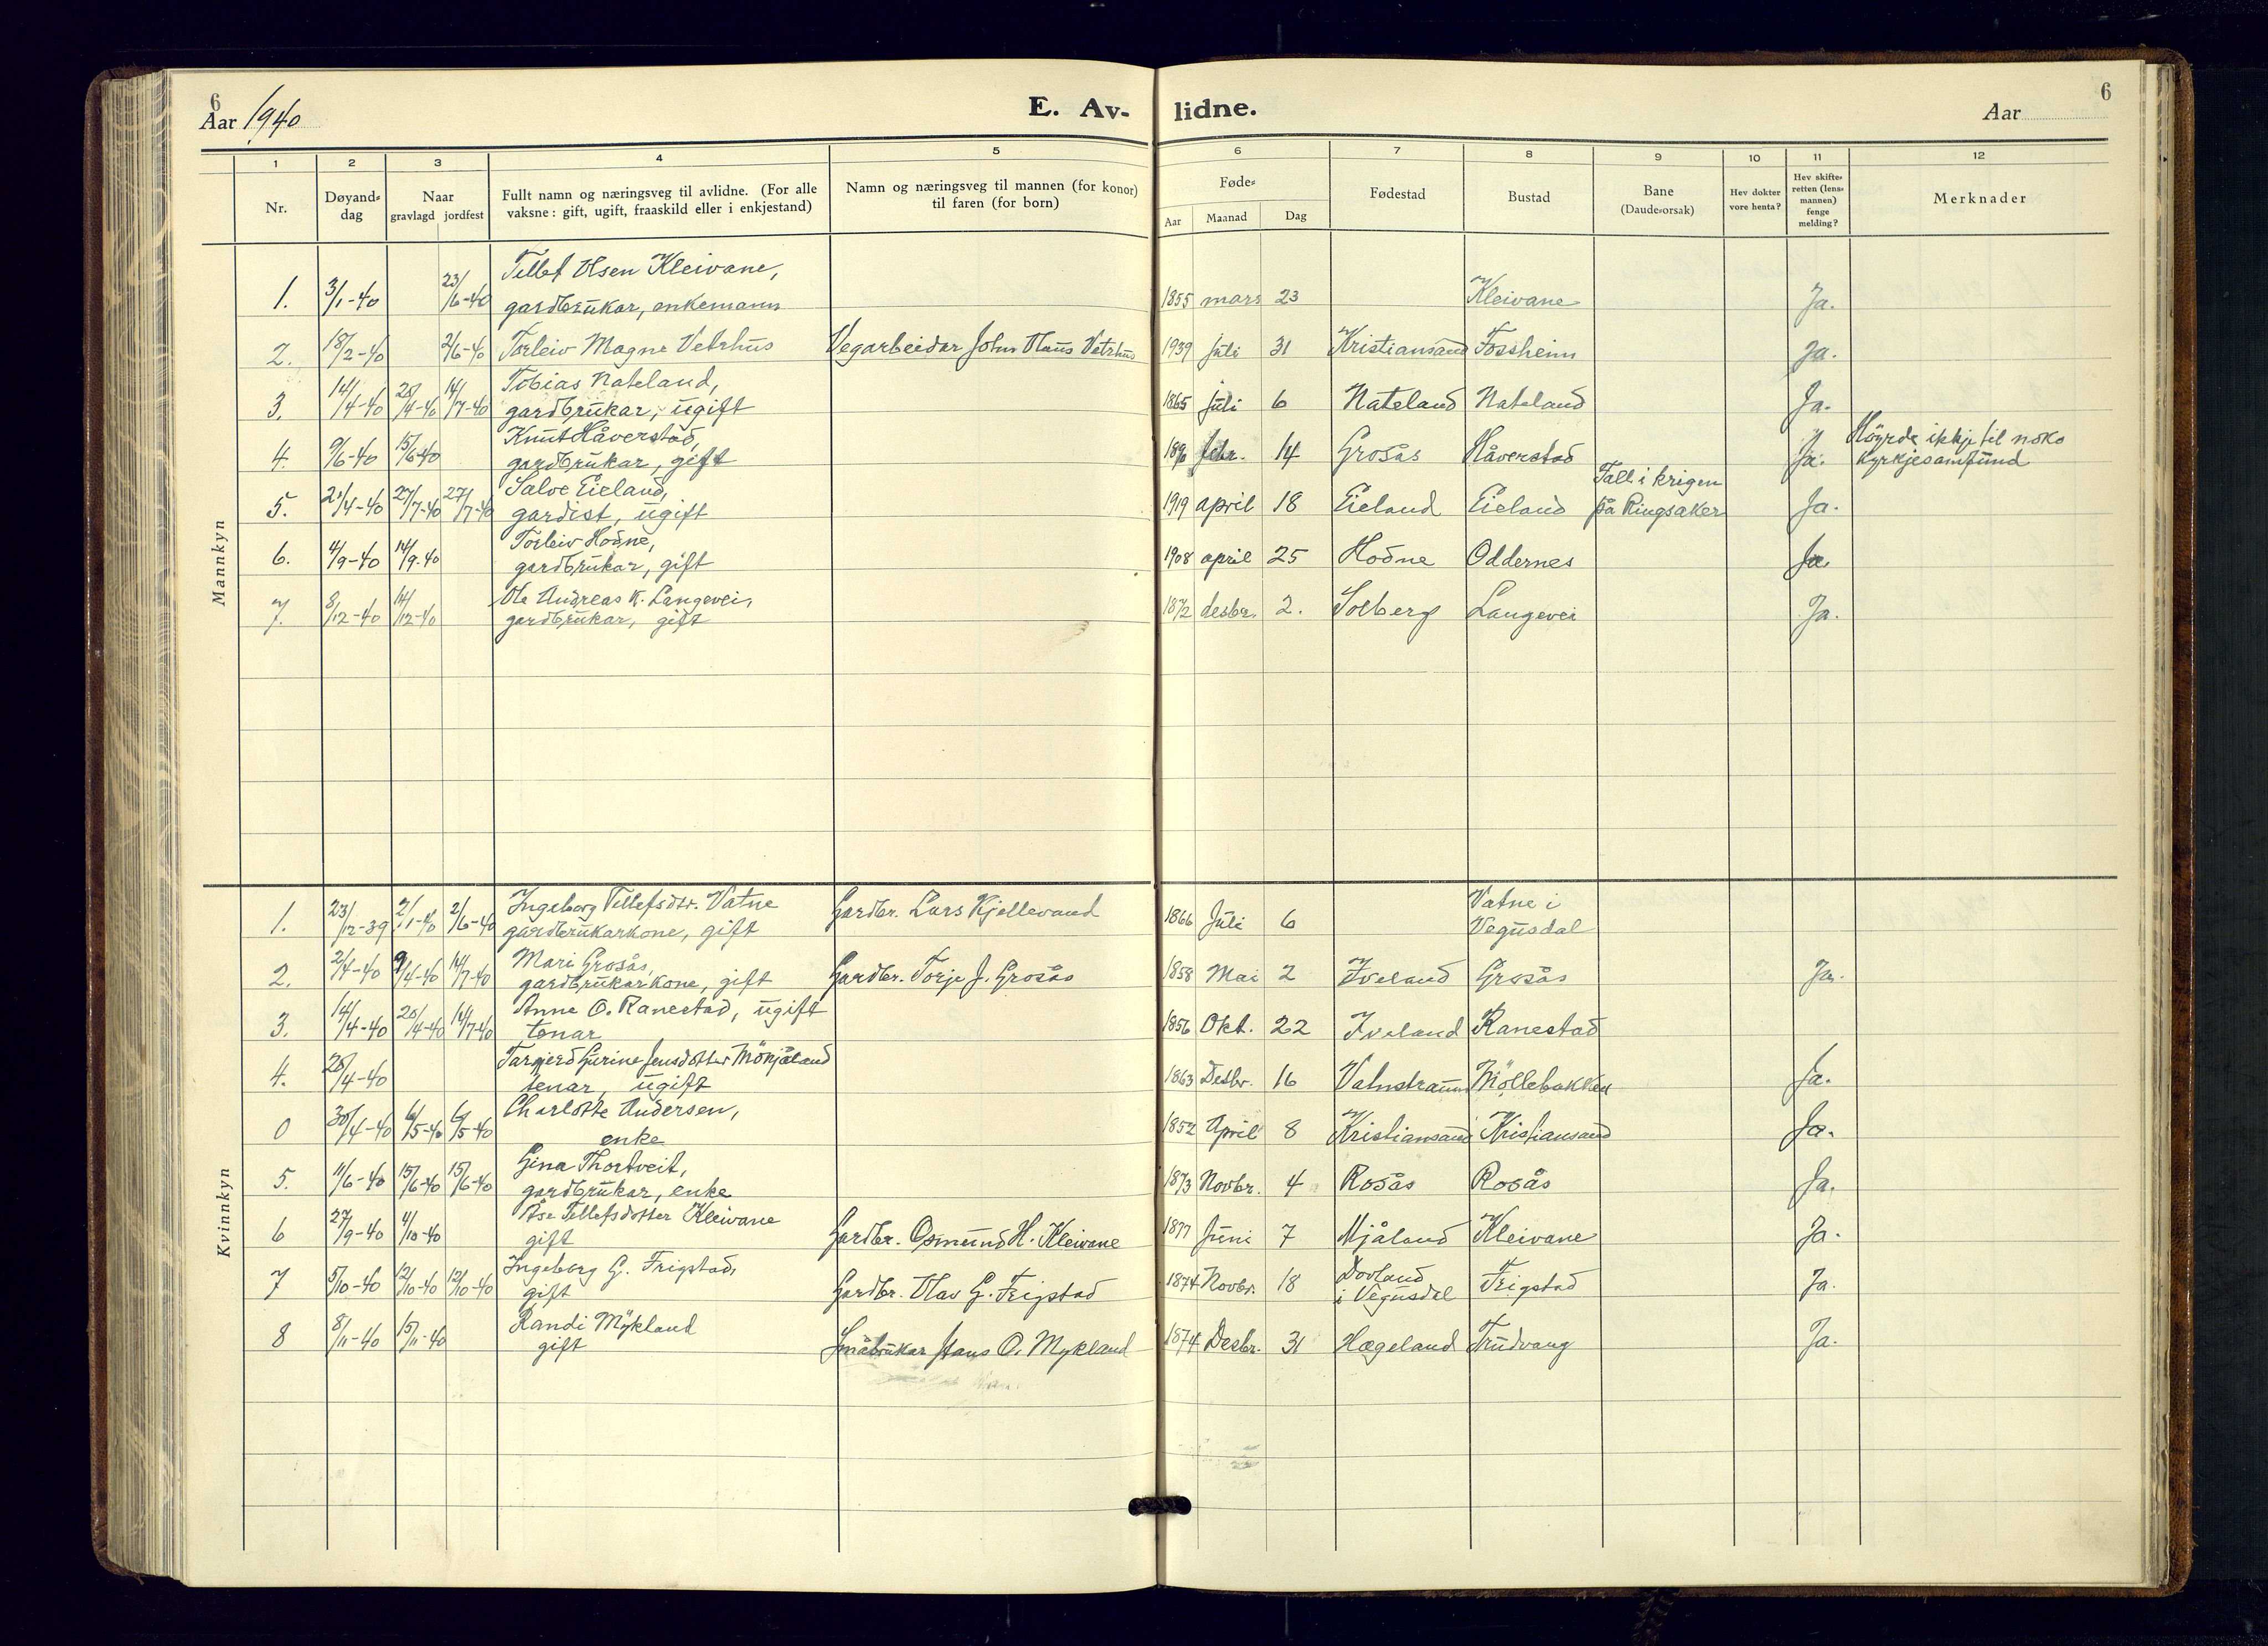 6
Aar 1940
E. Av-
lidne.
Aar
6
1 2 3 4 5 6 7 8 9 10 11 12
Nr.
Døyand-
dag
Naar
gravlagd jordfest
Fullt namn og næringsveg til avlidne. (For alle
vaksne: gift, ugift, fraaskild eller i enkjestand)
Namn og næringsveg til mannen (for konor)
til faren (for born)
Føde-
Aar Maanad Dag
Fødestad
Bustad
Bane
(Daude-orsak)
Hev dokter
vore henta?
Hev skifte-
retten (lens-
mannen)
fenge
melding?
Merknader
Mannkyn
1. 3/1-40 23/6-40 Tellef Olsen Kleivane,
gardbrukar, enkemann 1855 mars 23 Kleivane Ja.
2. 18/2-40 2/6-40 Torleiv Magne Vetrhus Vegarbeidar John Olaus Vetrhus 1939 juli 31 Kristiansand Fossheim Ja.
3. 14/4-40 20/4-40 14/7-40 Tobias Nateland,
gardbrukar, ugift 1865 juli 6 Nateland Nateland Ja.
4. 9/6-40 15/6-40 Knut Håverstad,
gardbrukar, gift febr. 14 Grosås Håverstad Ja. Höyrde ikkje til noko
kyrkjesamfund
5. 2¹/4-40 27/7-40 27/7-40 Salve Eieland,
gardist, ugift 1919 april 18 Eieland Eieland Fall i krigen
på Ringsaker Ja.
6. 4/9-40 14/9-40 Torleiv Hodne,
gardbrukar, gift 1908 april 25 Hodne Oddernes Ja.
7. 8/12-40 14/12-40 Ole Andreas K. Langevei,
gardbrukar, gift 1872 desbr. 2. Solberg Langevei Ja.
Kvinnkyn
1. 23/12-39 2/1-40 2/6-40 Ingeborg Tellefsdtr. Vatne
gardbrukarkone, gift Gardbr. Lars Kjellevand 1866 Juli 6 Vatne i
Vegusdal
2. 2/4-40 9/4-40 14/7-40 Mari Grosås,
gardbrukarkone, gift Gardbr. Torje J. Grosås 1858 Mai 2 Iveland Grosås Ja.
3. 14/4-40 20/4-40 14/7-40 Anne O. Ranestad, ugift
tenar 1856 Okt. 22 Iveland Ranestad
4. 28/4-40 Targjerd Gurine Jensdotter Mönjåland
tenar, ugift 1863 Desbr. 16 Vatnstraum Möllebakken Ja.
0 30/4-40 6/5-40 6/5-40 Charlotte Andersen,
enke 1852 April 8 Kristiansand Kristiansand Ja.
5. 11/6-40 15/6-40 15/6-40 Gina Thortveit,
gardbrukar, enke 1873 Novbr. 4 Rosås Rosås Ja.
6 27/9-40 4/10-40 Åse Tellefsdotter Kleivane
gift Gardbr. Osmund H. Kleivane 1877 Juni 7 Mjåland Kleivane Ja.
7 5/10-40 12/10-40 12/10-40 Ingeborg G. Frigstad,
gift Gardbr. Olav G. Frigstad 1874 Novbr. 18 Dovland
i Vegusdal Frigstad Ja.
8 8/11-40 15/11-40 Randi Mykland
gift Småbrukar Hans O. Mykland 1874 Desbr. 31 Hægeland Trudvang Ja.